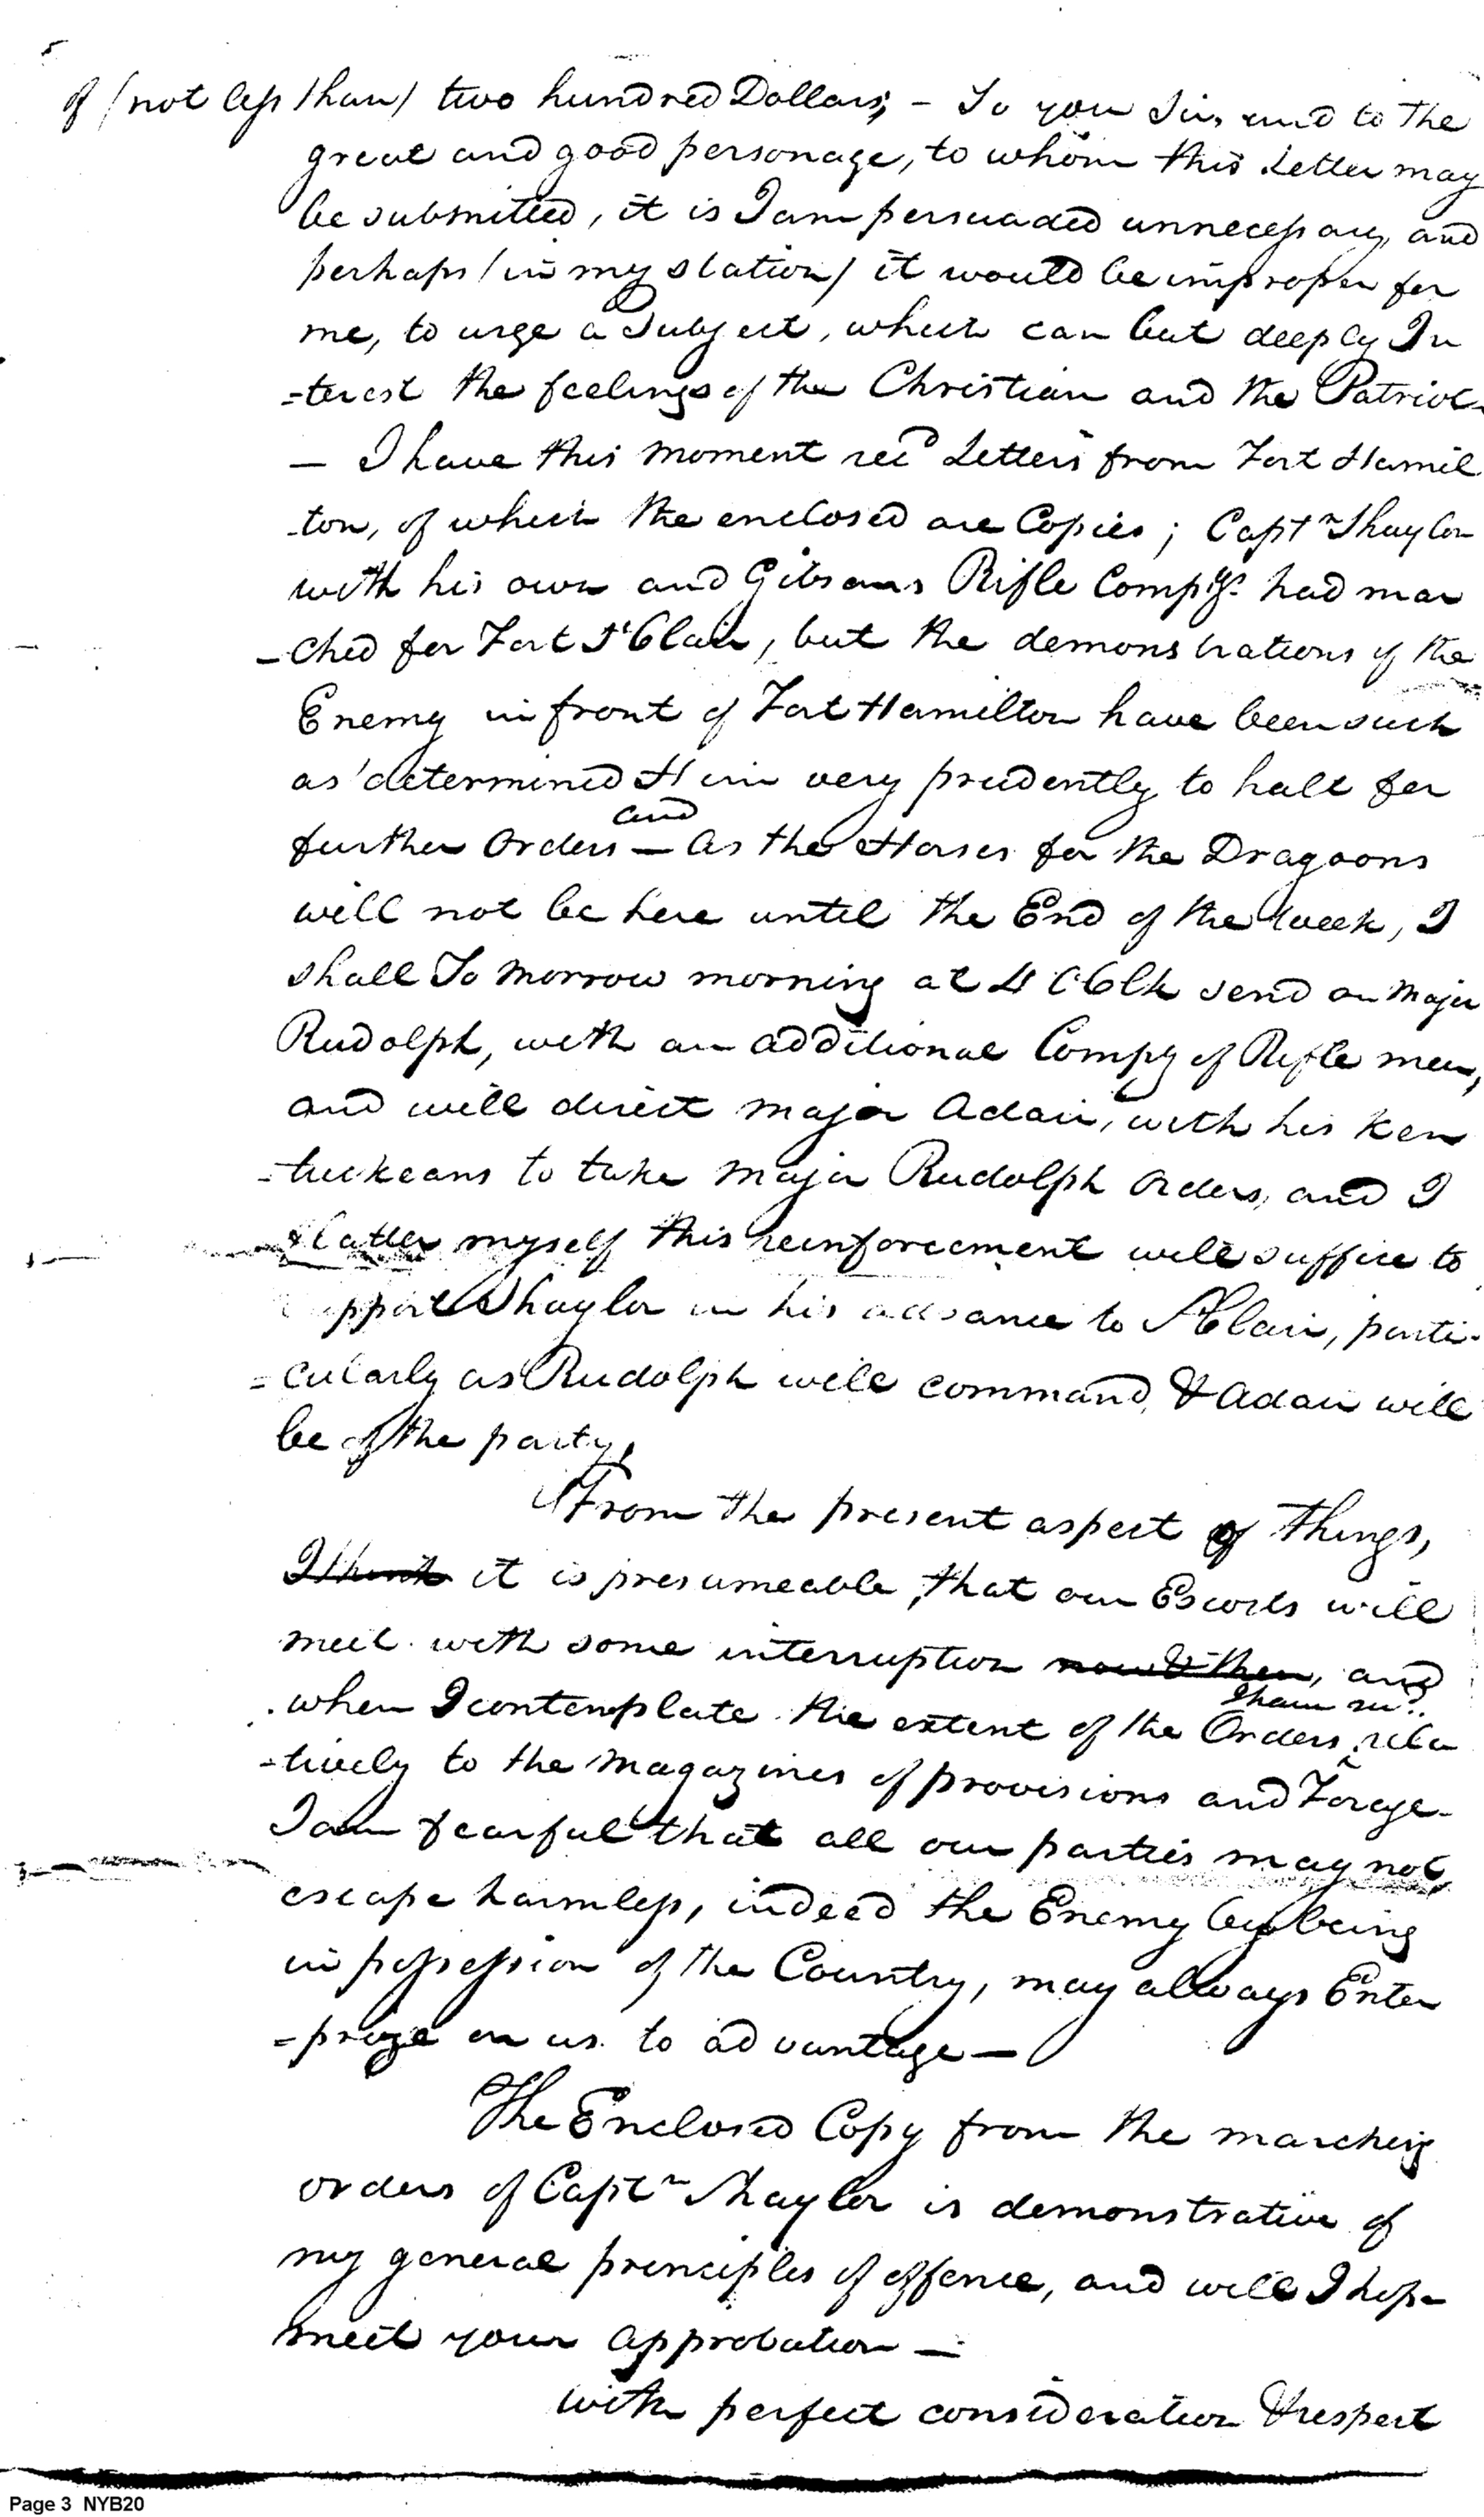 of (not less than) two hundred Dollars; - To you Sir, and to the
great and good personage, to whom this Letter may
be submitted, it is I am persuaded unnecessary, and
perhaps (in my station) it would be improper for
me, to urge a Subject, which can but deeply In
=terest the feelings of the Christian and the Patriot.
— I have this moment recd Letters from Fort Hamil
-ton, of which the enclosed are Copies; Captn Shaylor
with his own and Gibsons Rifle Compys. had mar
-ched for Fort St Clair, but the demonstrations of the
Enemy in front of Fort Hamilton have been such
as determined Him very prudently to halt for
and
further Orders — As the Horses for the Dragoons
will not be here until the End of the Week, I
shall To morrow morning at 4 OClk send on Major
Rudolph, with an additional Compy of Rifle men,
and will direct major Adair, with his Ken
-tuckeans to take Major Rudolph Orders, and I
flatter myself this reinforcement will suffice to
support Shaylor in his advance to St Clair, parti-
=cularly as Rudolph will command, & Adair will
be of the party,
From the present aspect of things,
I think it is presumeable, that our Escorts will
meet with some interruption now & then, and
I have recd.
when I contemplate the extent of the Orders, rela
-tively to the Magazines of provisions and Forage-
I am fearful that all our parties may not,
escape harmless, indeed the Enemy by being
in possession of the Country, may always Enter
=prize on us to advantage —
The Enclosed Copy from the marching
orders of Captn Shaylor is demonstrative of
my general principles of offence, and will I hope
meet your approbation —
with perfect consideration & respect
Page 3 NYB20